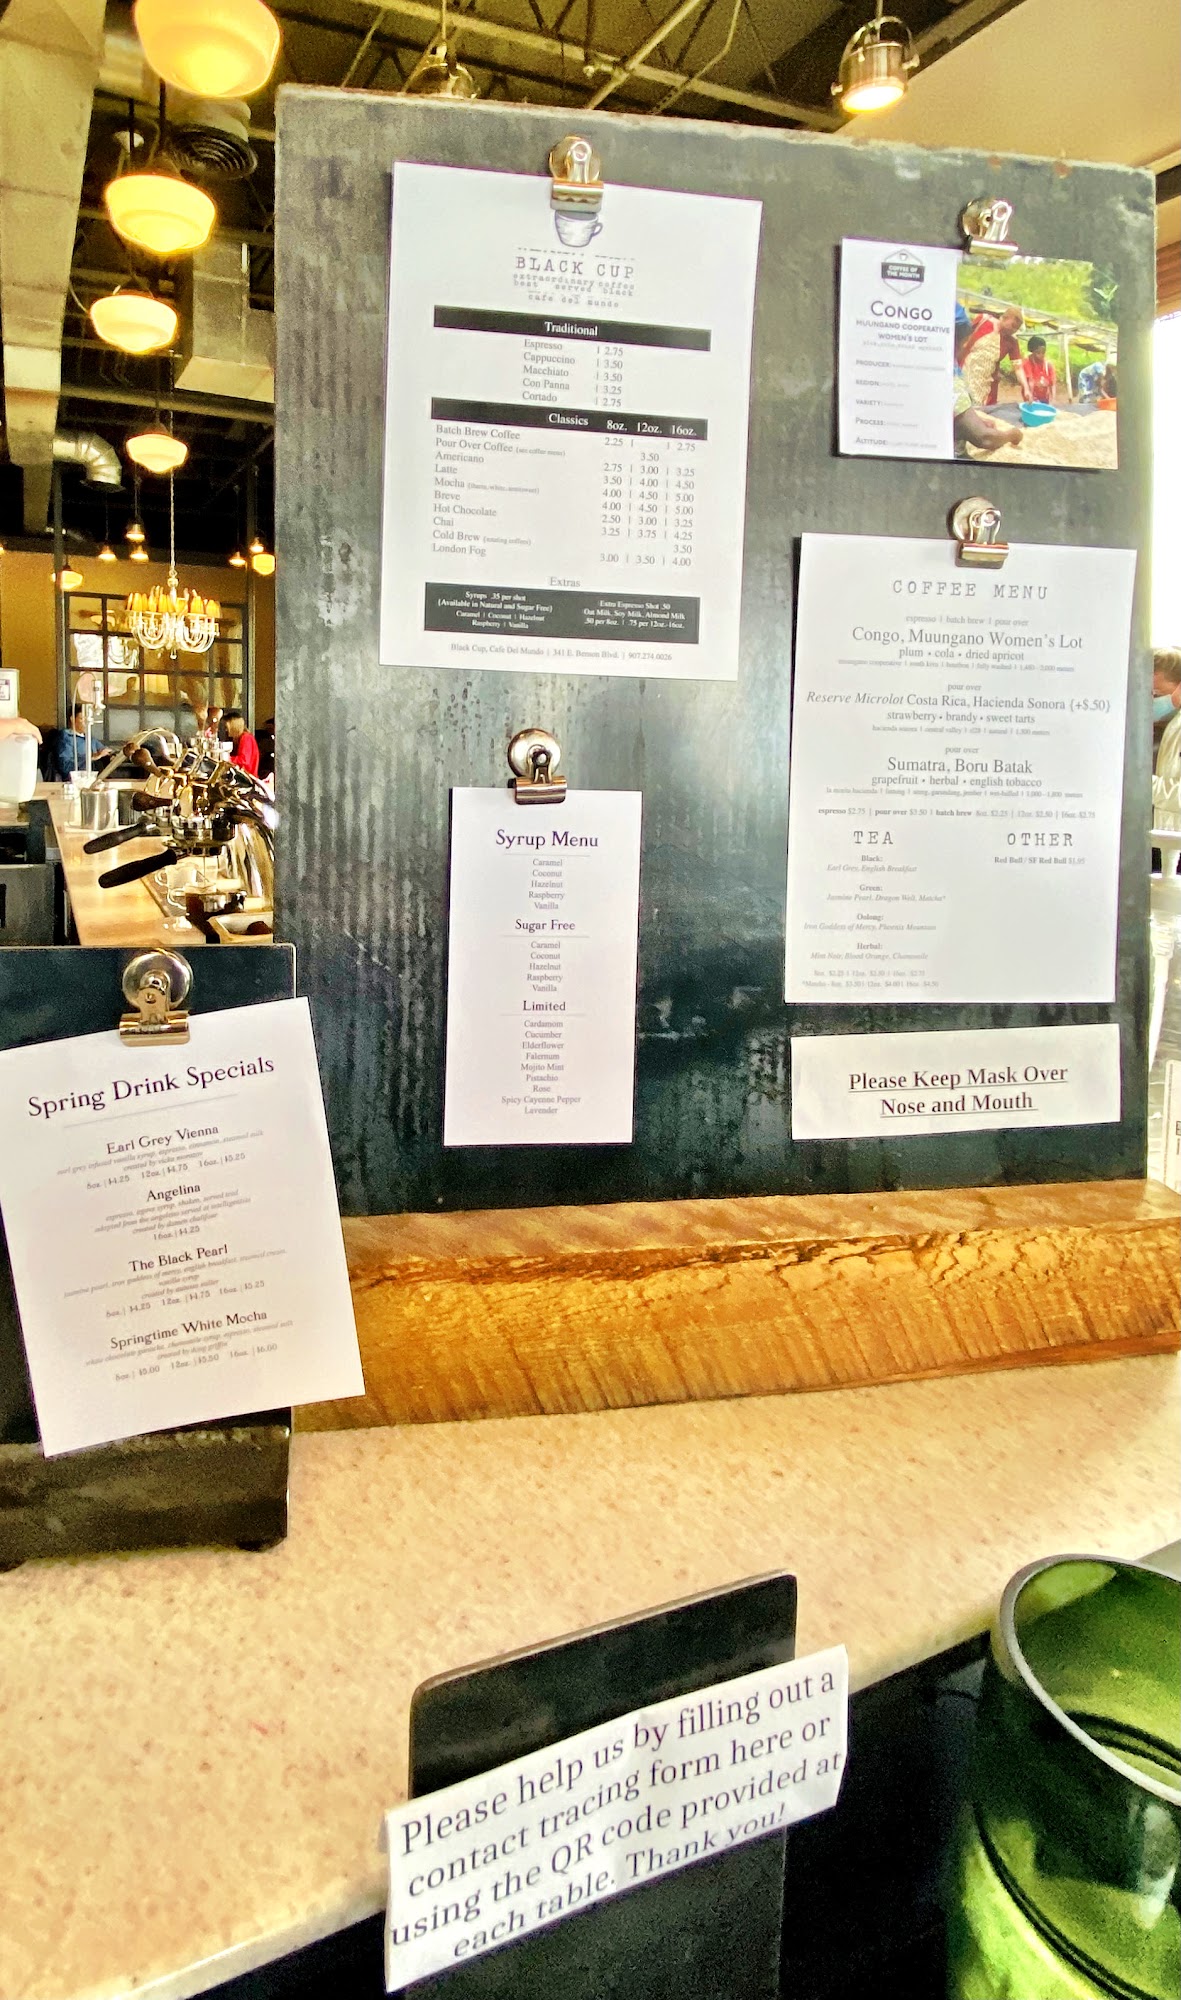 BLACK CUP
extraordinary coffee
best served black
cafe del mundo
Traditional
Espresso | 2.75
Cappuccino | 3.50
Macchiato | 3.50
Con Panna | 3.25
Cortado | 2.75
Classics 8oz. 12oz. 16oz.
Batch Brew Coffee 2.25 | | 2.75
Pour Over Coffee (see coffee menu) 3.50
Americano 2.75 | 3.00 | 3.25
Latte 3.50 | 4.00 | 4.50
Mocha 4.00 | 4.50 | 5.00
Breve 4.00 | 4.50 | 5.00
Hot Chocolate 2.50 | 3.00 | 3.25
Chai 3.25 | 3.75 | 4.25
Cold Brew (rotating coffees) 3.50
London Fog 3.00 | 3.50 | 4.00
Extras
Syrups .35 per shot
(Available in Natural and Sugar Free)
Caramel | Coconut | Hazelnut
Raspberry | Vanilla
Extra Espresso Shot .50
Oat Milk, Soy Milk, Almond Milk
.50 per 8oz. | .75 per 12oz.-16oz.
Black Cup, Cafe Del Mundo | 341 E. Benson Blvd. | 907.274.0026
COFFEE OF
THE MONTH
CONGO
MUUNGANO COOPERATIVE
WOMEN'S LOT
PRODUCER:
REGION:
VARIETY:
PROCESS:
ALTITUDE:
COFFEE MENU
espresso | batch brew | pour over
Congo, Muungano Women's Lot
plum • cola • dried apricot
muungano cooperative | south kivu | bourbon | fully washed |
pour over
Reserve Microlot Costa Rica, Hacienda Sonora {+$.50}
strawberry • brandy • sweet tarts
hacienda sonora | central valley | | natural |
pour over
Sumatra, Boru Batak
grapefruit • herbal • english tobacco
espresso $2.75 | pour over $3.50 | batch brew 8oz. $2.25 | 12oz. $2.50 | 16oz. $2.75
TEA
Black:
Earl Grey, English Breakfast
Green:
Jasmine Pearl, Dragon Well, Matcha*
Oolong:
Iron Goddess of Mercy, Phoenix Mountain
Herbal:
Mint Noir, Blood Orange, Chamomile
8oz. $2.25 | 12oz. $2.50 | 16oz. $2.75
OTHER
Red Bull / SF Red Bull
Syrup Menu
Caramel
Coconut
Hazelnut
Raspberry
Vanilla
Sugar Free
Caramel
Coconut
Hazelnut
Raspberry
Vanilla
Limited
Cardamom
Cucumber
Elderflower
Falernum
Mojito Mint
Pistachio
Rose
Spicy Cayenne Pepper
Lavender
Please Keep Mask Over
Nose and Mouth
Spring Drink Specials
Earl Grey Vienna
earl grey infused vanilla syrup, espresso, cinnamon, steamed milk
created by
8oz. | $4.25 12oz. | $4.75 16oz. | $5.25
Angelina
espresso, syrup, shaken, served iced
adapted from the angelino served at intelligentsia
created by
16oz. | $4.25
The Black Pearl
jasmine pearl, iron goddess of mercy, english breakfast, steamed cream,
vanilla syrup
created by
8oz. | $4.25 12oz. | $4.75 16oz. | $5.25
Springtime White Mocha
white chocolate ganache, chamomile syrup, espresso, steamed milk
created by
8oz. | $5.00 12oz. | $5.50 16oz. | $6.00
Please help us by filling out a
contact tracing form here or
using the QR code provided at
each table. Thank you!